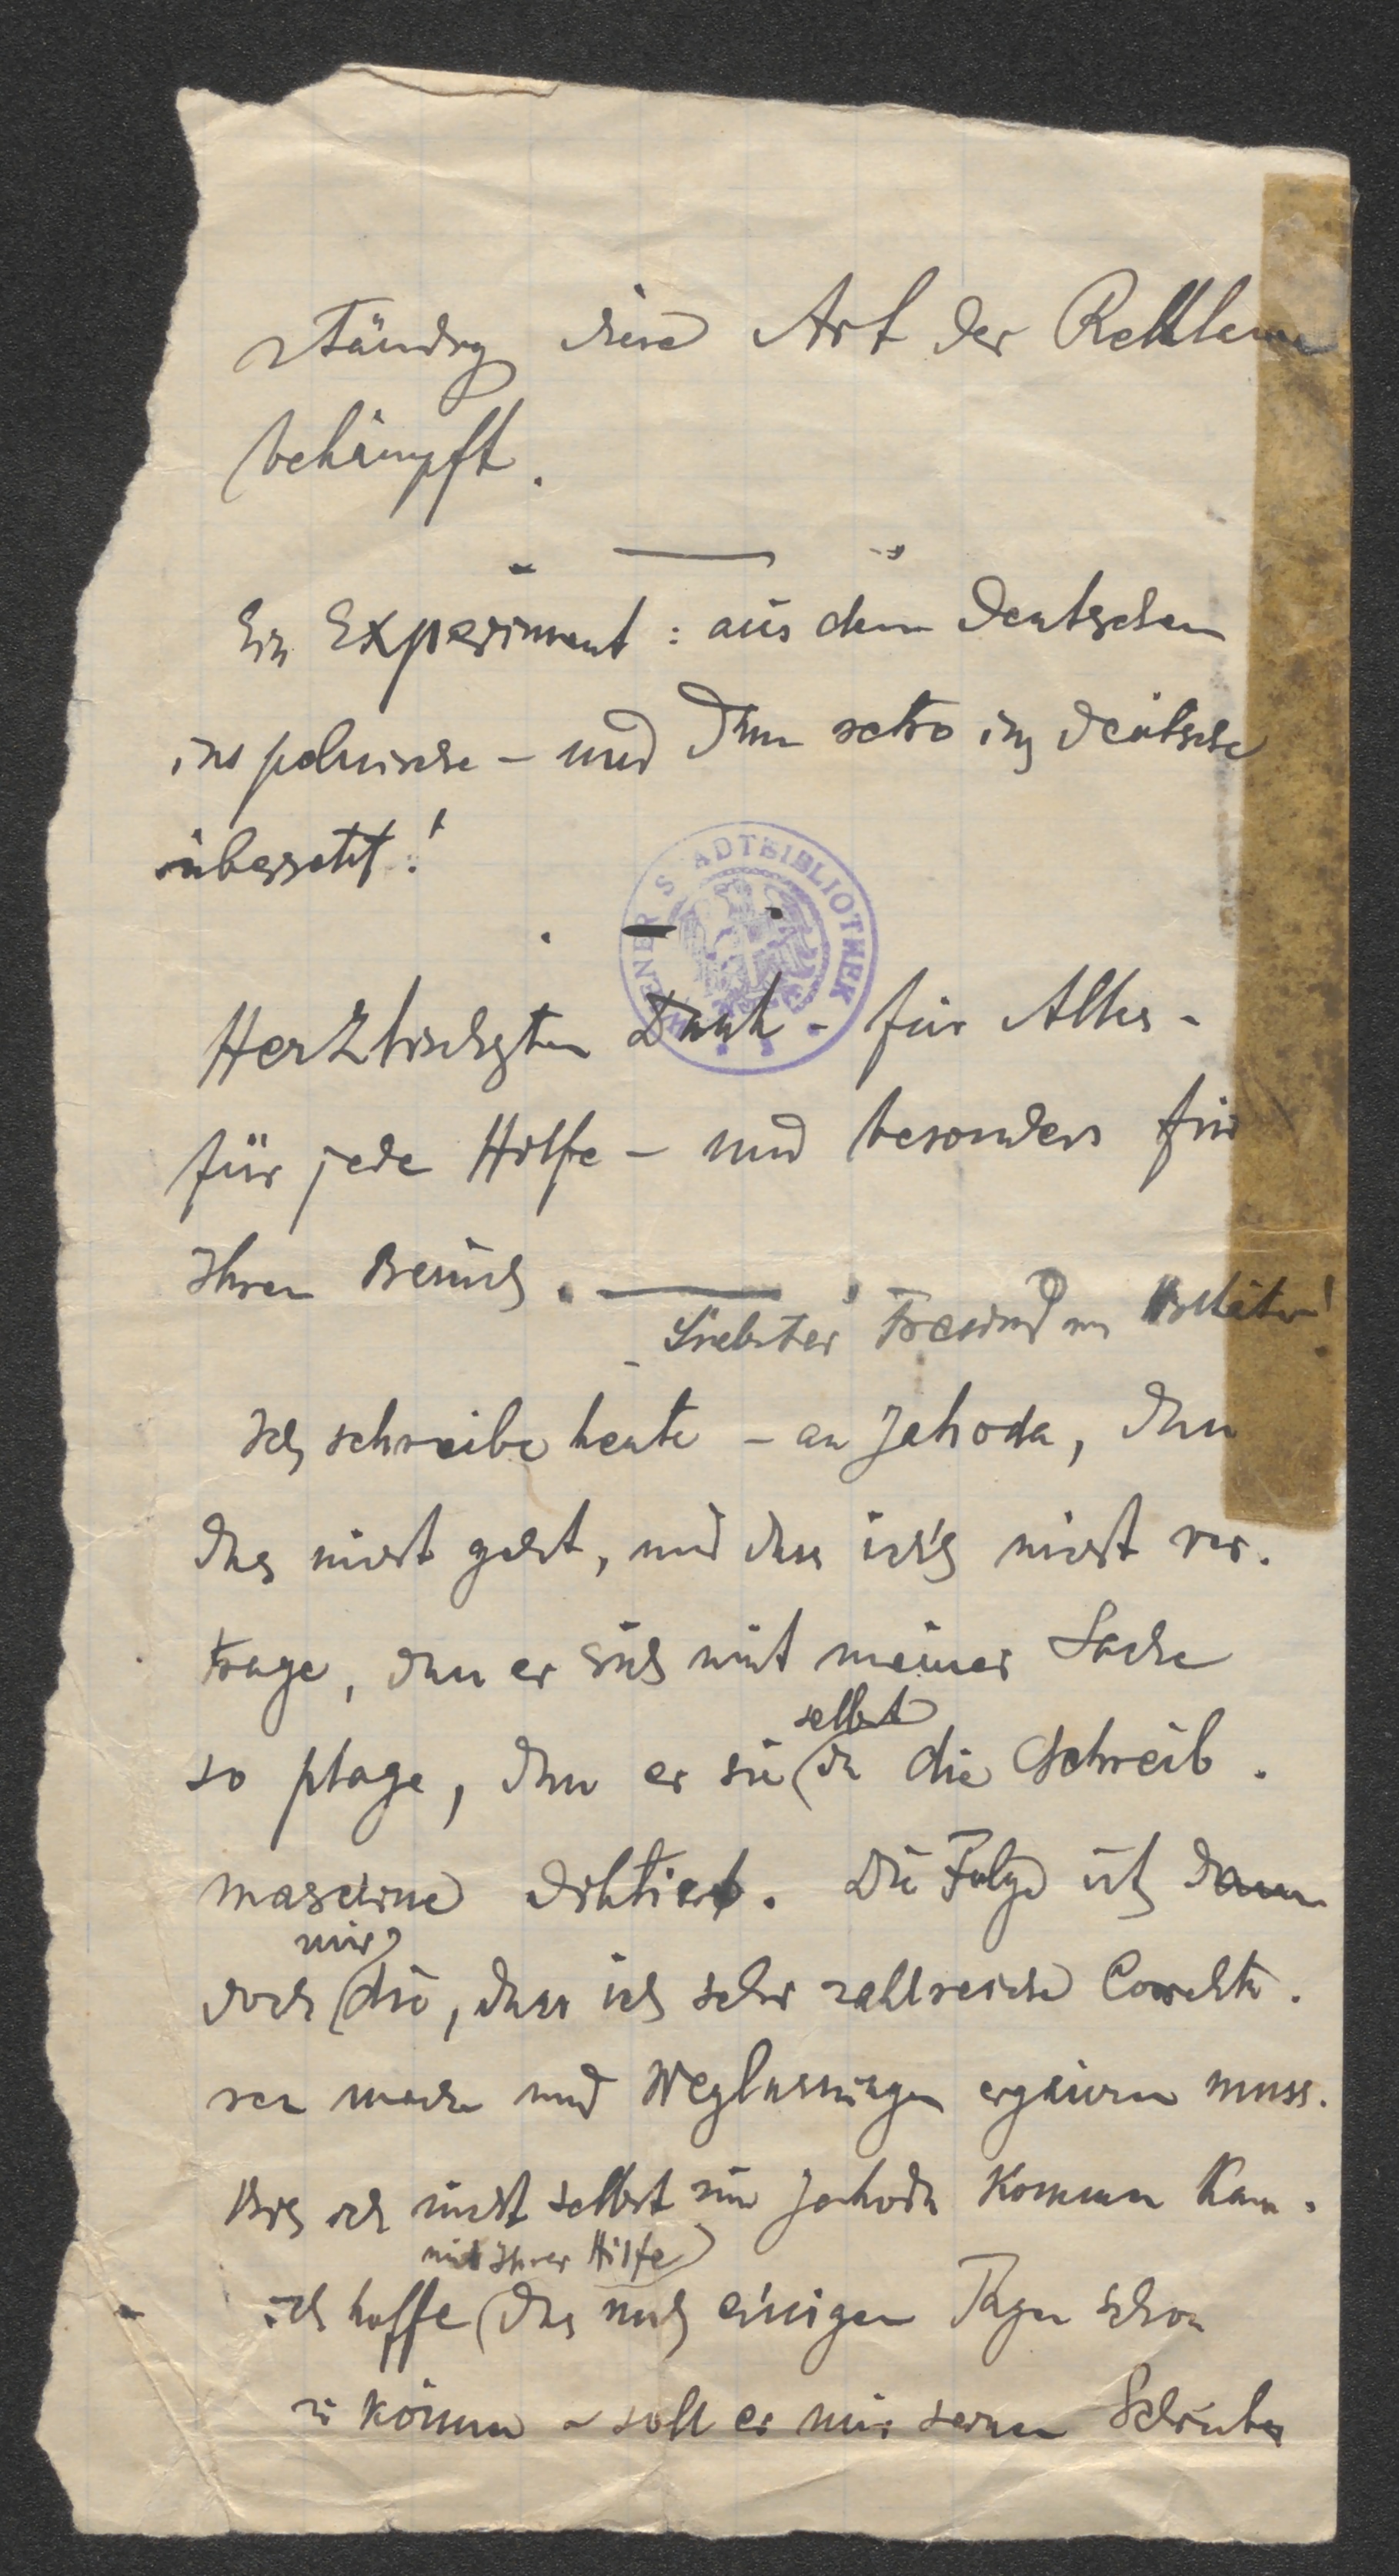 ständig diese Art der Reklame
bekämpft.
Ein Experiment: aus dem Deutschen
ins polnische – und dann retro ins deutsche
übersetzt!
WIENER STADTBIBLIOTHEK
Herzlichsten Dank – für Alles –
für jede Hilfe – und besonders für
Ihren Besuch.
Liebster Freund
Ich schreibe heute – an Jahoda, dass
das nicht geht, und dass ich's nicht ver-
trage, dass er sich mit meiner Sache
so plage, dass er sie selbst in die Schreib-
maschine diktiert. Die Folge ist dann
doch mir die, dass ich sehr zahlreiche Correktu-
ren machen und Weglassungen ergänzen muss.
Bis ich nicht selbst zu Jahoda kommen kann –
ich hoffe mit Ihrer Hilfe das nach einigen Tagen schon
zu können – soll er mir seinen Schreiber